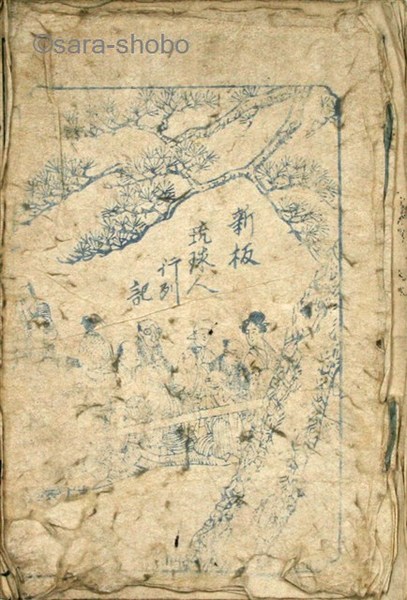 ©sara-shobo
新板
琉球人
行列
記